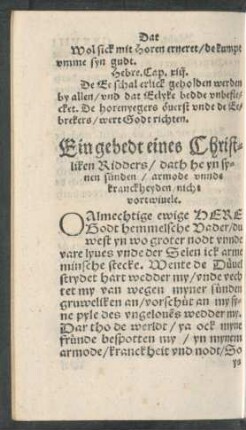 Dat
Wol sick mit Horen erneret/de kumpt
vmme syn gudt.
Hebre. Cap. xiij.
De Ee schal erlick geholden werden
by allen/vnd dat Eelyke bedde vnbefle-
cket. De horenyegers öuerst vnde de Ee-
brekers/wert Godt richten.
Ein gebedt eines Christ-
liken Ridders/dath he yn sy-
nen sünden/armode vnnde
kranckheyden/nicht
vortwiuele.
O Almechtige ewige HERE
Godt hemmelsche Vader/du
west yn wo groter nodt vnnde
vare lyues vnde der Selen ick arme
minsche stecke. Wente de Düuel
strydet hart wedder my/vnde vech
tet my van wegen myner sünden
gruweliken an/vorschüt an my sy-
ne pyle des vngelouës wedder my.
Dar tho de werldt/ya ock myne
fründe bespotten my/yn mynem
armode/kranckheit vnd nodt/So
ys